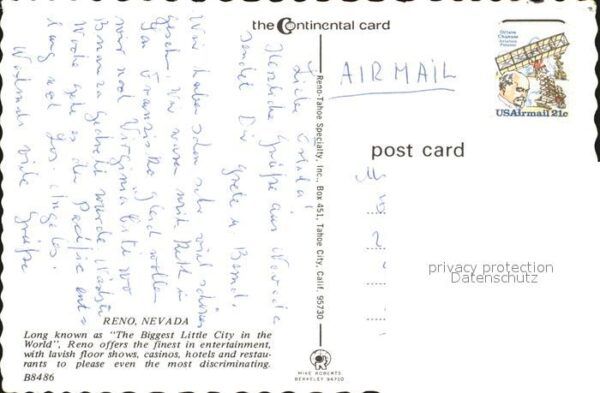 the Continental card
Liebe
Herzliche Grüße aus Nevada
sendet Dir Grete u. Bernd.
Wir haben schon sehr viel schönes
gesehen. Wir waren mit Ruth in
San Franzisko, gleich wollen
wir nach Virginia City wo
Bonanza gedreht wurde. Nächste
Woche geht es den Pacific ent-
lang nach Los Angeles.
viele Grüße
AIR MAIL
Octave
Chanute
Aviation
Pioneer
USAirmail 21c
post card
Reno-Tahoe Specialty, Inc., Box 451, Tahoe City, Calif. 95730
privacy protection
Datenschutz
RENO, NEVADA
Long known as "The Biggest Little City in the
World", Reno offers the finest in entertainment,
with lavish floor shows, casinos, hotels and restau-
rants to please even the most discriminating.
B8486
MIKE ROBERTS
BERKELEY 94710